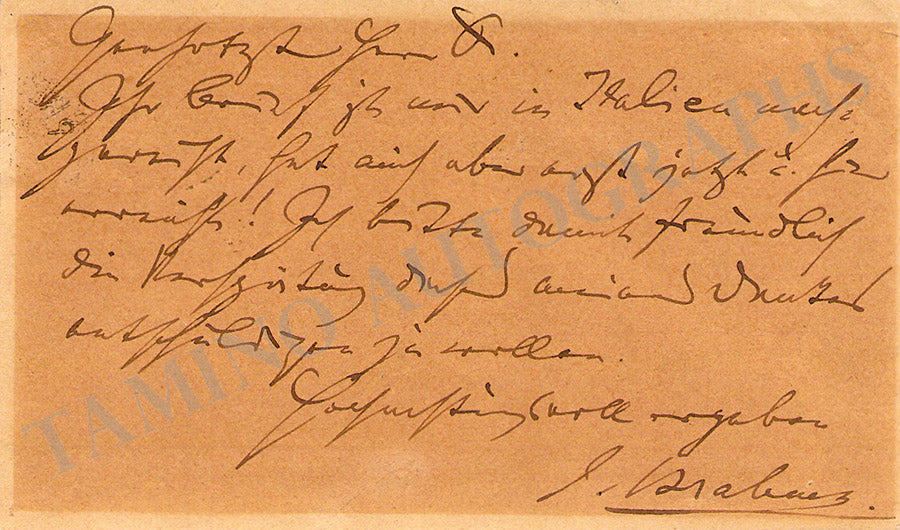 Geehrtester Herr X.
Ihr Brief ist mir in Italien nach-
gereist, hat mich aber erst jetzt u. hier
erreicht! Ich bitte damit freundlich
die Verspätung dieses meines Dankes
entschuldigen zu wollen.
Hochachtungsvoll ergeben
J. Brahms.
TAMINO AUTOGRAPHS